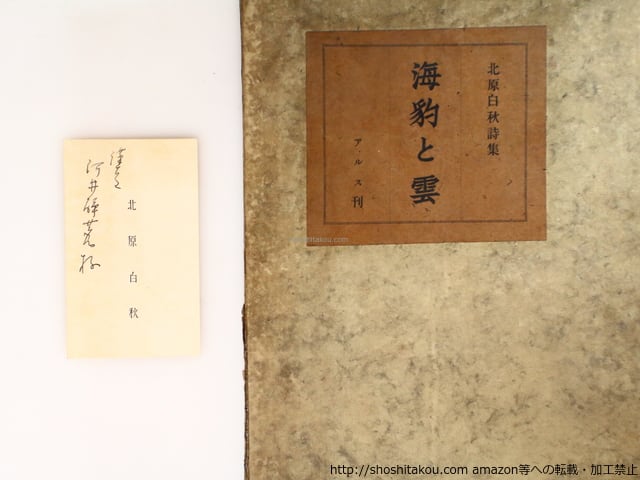 北原白秋詩集
海豹と雲
アルス刊
北原白秋
河井酔茗様
shoshitakou.com
http://shoshitakou.com amazon等への転載・加工禁止